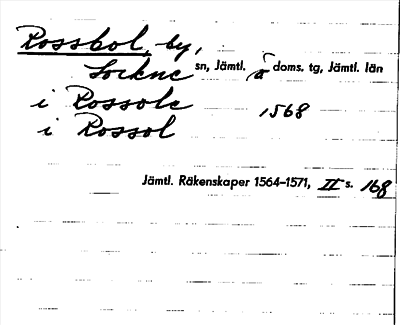 Rossbol, by,
Lockne sn, Jämtl. doms. tg, Jämtl. län
i Rossole 1568
i Rossol
Jämtl. Räkenskaper 1564–1571, II s. 168